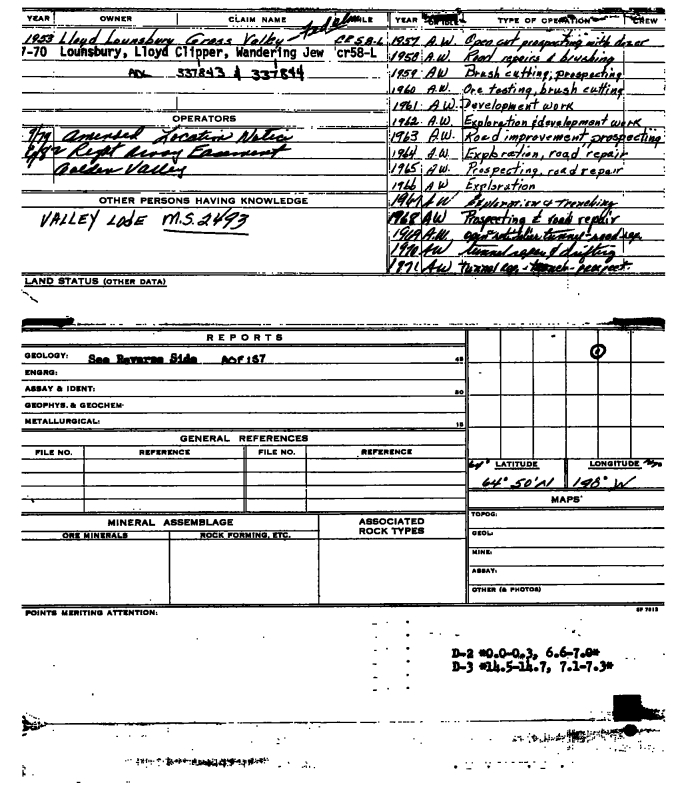 YEAR OWNER CLAIM NAME FILE
1953 Lloyd Lounsbury Grass Valley CR 58-L
7-70 Lounsbury, Lloyd Clipper, Wandering Jew cr58-L
ADL 337843 & 337844
OPERATORS
9/79 Amended Location Notice
6/82 Right Away Easement
Golden Valley
OTHER PERSONS HAVING KNOWLEDGE
VALLEY LODE M.S. 2493
LAND STATUS (OTHER DATA)
YEAR TYPE OF OPERATION CREW
1957 A.W. Open cut prospecting with dozer
1958 A.W. Road repairs & brushing
1959 A.W. Brush cutting, prospecting
1960 A.W. Ore testing, brush cutting
1961 A.W. Development work
1962 A.W. Exploration & development work
1963 A.W. Road improvement, prospecting
1964 A.W. Exploration, road repair
1965 A.W. Prospecting, road repair
1966 AW Exploration
1967 AW Exploration & Trenching
1968 AW Prospecting & road repair
1969 A.W. tunnel-road rep.
1970 AW tunnel repair & drifting
1971 AW tunnel rep. - trench - prospect.
REPORTS
GEOLOGY: See Reverse Side AOF 157 45
ENGRG:
ASSAY & IDENT: 30
GEOPHYS. & GEOCHEM.
METALLURGICAL: 15
GENERAL REFERENCES
FILE NO. REFERENCE FILE NO. REFERENCE
64° LATITUDE LONGITUDE
64° 50' N 148° W
MAPS
TOPOG:
GEOL:
MINE:
ASSAY:
OTHER (& PHOTOS)
MINERAL ASSEMBLAGE
ORE MINERALS ROCK FORMING, ETC.
ASSOCIATED
ROCK TYPES
POINTS MERITING ATTENTION:
SP 7613
D-2 *0.0-0.3, 6.6-7.0*
D-3 *14.5-14.7, 7.1-7.3*